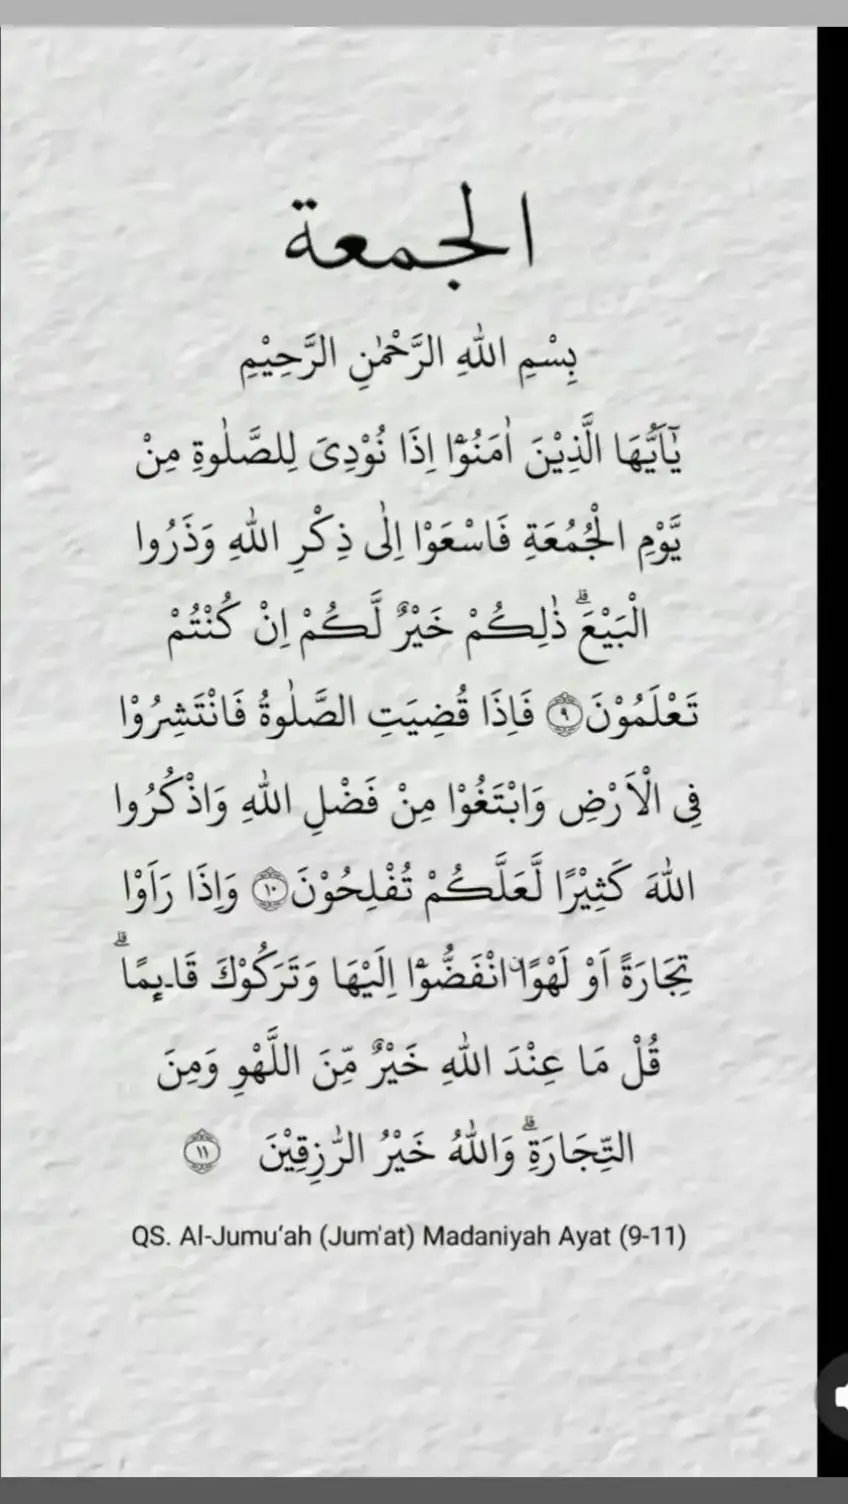 الجمعة
بِسْمِ اللّٰهِ الرَّحْمٰنِ الرَّحِيْمِ
يٰٓاَيُّهَا الَّذِيْنَ اٰمَنُوْٓا اِذَا نُوْدِيَ لِلصَّلٰوةِ مِنْ
يَّوْمِ الْجُمُعَةِ فَاسْعَوْا اِلٰى ذِكْرِ اللّٰهِ وَذَرُوا
الْبَيْعَۗ ذٰلِكُمْ خَيْرٌ لَّكُمْ اِنْ كُنْتُمْ
تَعْلَمُوْنَ ۝٩ فَاِذَا قُضِيَتِ الصَّلٰوةُ فَانْتَشِرُوْا
فِى الْاَرْضِ وَابْتَغُوْا مِنْ فَضْلِ اللّٰهِ وَاذْكُرُوا
اللّٰهَ كَثِيْرًا لَّعَلَّكُمْ تُفْلِحُوْنَ ۝١٠ وَاِذَا رَاَوْا
تِجَارَةً اَوْ لَهْوًا ۨانْفَضُّوْٓا اِلَيْهَا وَتَرَكُوْكَ قَاۤىِٕمًاۗ
قُلْ مَا عِنْدَ اللّٰهِ خَيْرٌ مِّنَ اللَّهْوِ وَمِنَ
التِّجَارَةِۗ وَاللّٰهُ خَيْرُ الرّٰزِقِيْنَ ۝١١
QS. Al-Jumu‘ah (Jum'at) Madaniyah Ayat (9-11)